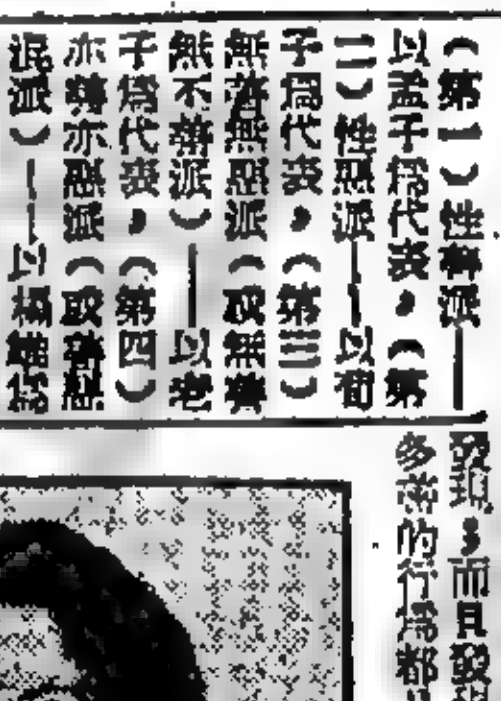 （第一）性善派——
以孟子爲代表，（第
二）性惡派——以荀
子爲代表，（第三）
無善無惡派（或無善
無不善派）——以老
子爲代表，（第四）
亦善亦惡派（或善惡
混派）——以楊雄爲
發現，而且發現
多善的行爲都